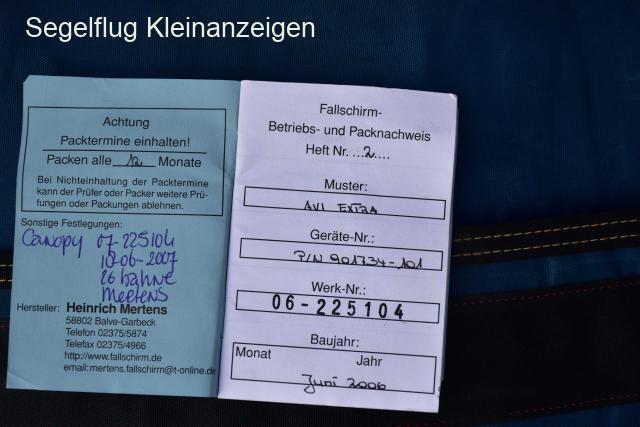 Segelflug Kleinanzeigen
Achtung
Packtermine einhalten!
Packen alle 12 Monate
Bei Nichteinhaltung der Packtermine
kann der Prüfer oder Packer weitere Prü-
fungen oder Packungen ablehnen.
Sonstige Festlegungen:
Canopy 07-225104
10-06-2007
26 bahne
Mertens
Hersteller: Heinrich Mertens
58802 Balve-Garbeck
Telefon 02375/5874
Telefax 02375/4966
http://www.fallschirm.de
email:mertens.fallschirm@t-online.de
Fallschirm-
Betriebs- und Packnachweis
Heft Nr. ...2....
Muster:
AVI EXTRA
Geräte-Nr.:
P/N 901734-101
Werk-Nr.:
06-225104
Baujahr:
Monat Jahr
Juni 2006